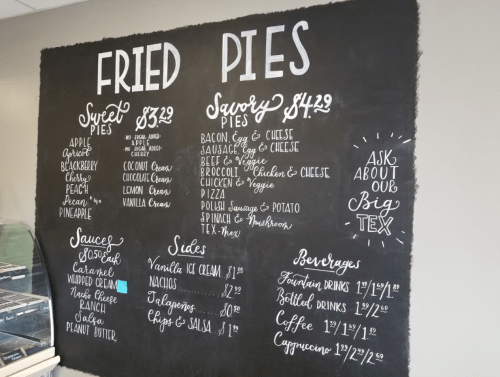 FRIED PIES
Sweet $3.29
PIES
APPLE
Apricot
BLACKBERRY
Cherry
PEACH
Pecan
PINEAPPLE
NO SUGAR ADDED
APPLE
NO SUGAR ADDED
CHERRY
COCONUT Cream
CHOCOLATE Cream
LEMON Cream
VANILLA Cream
Savory $4.29
PIES
BACON, Egg & CHEESE
SAUSAGE, Egg & CHEESE
BEEF & Veggie
BROCCOLI, Chicken & CHEESE
CHICKEN & Veggie
PIZZA
POLISH Sausage & POTATO
SPINACH & Mushroom
TEX-Mex
ASK
ABOUT
OUR
Big
TEX
Sauces
$0.50 Each
Caramel
WHIPPED CREAM
Nacho Cheese
RANCH
Salsa
PEANUT BUTTER
Sides
Vanilla ICE CREAM $1
NACHOS $2
Jalapeños $0
Chips & SALSA $1
Beverages
Fountain DRINKS
Bottled DRINKS
Coffee
Cappuccino